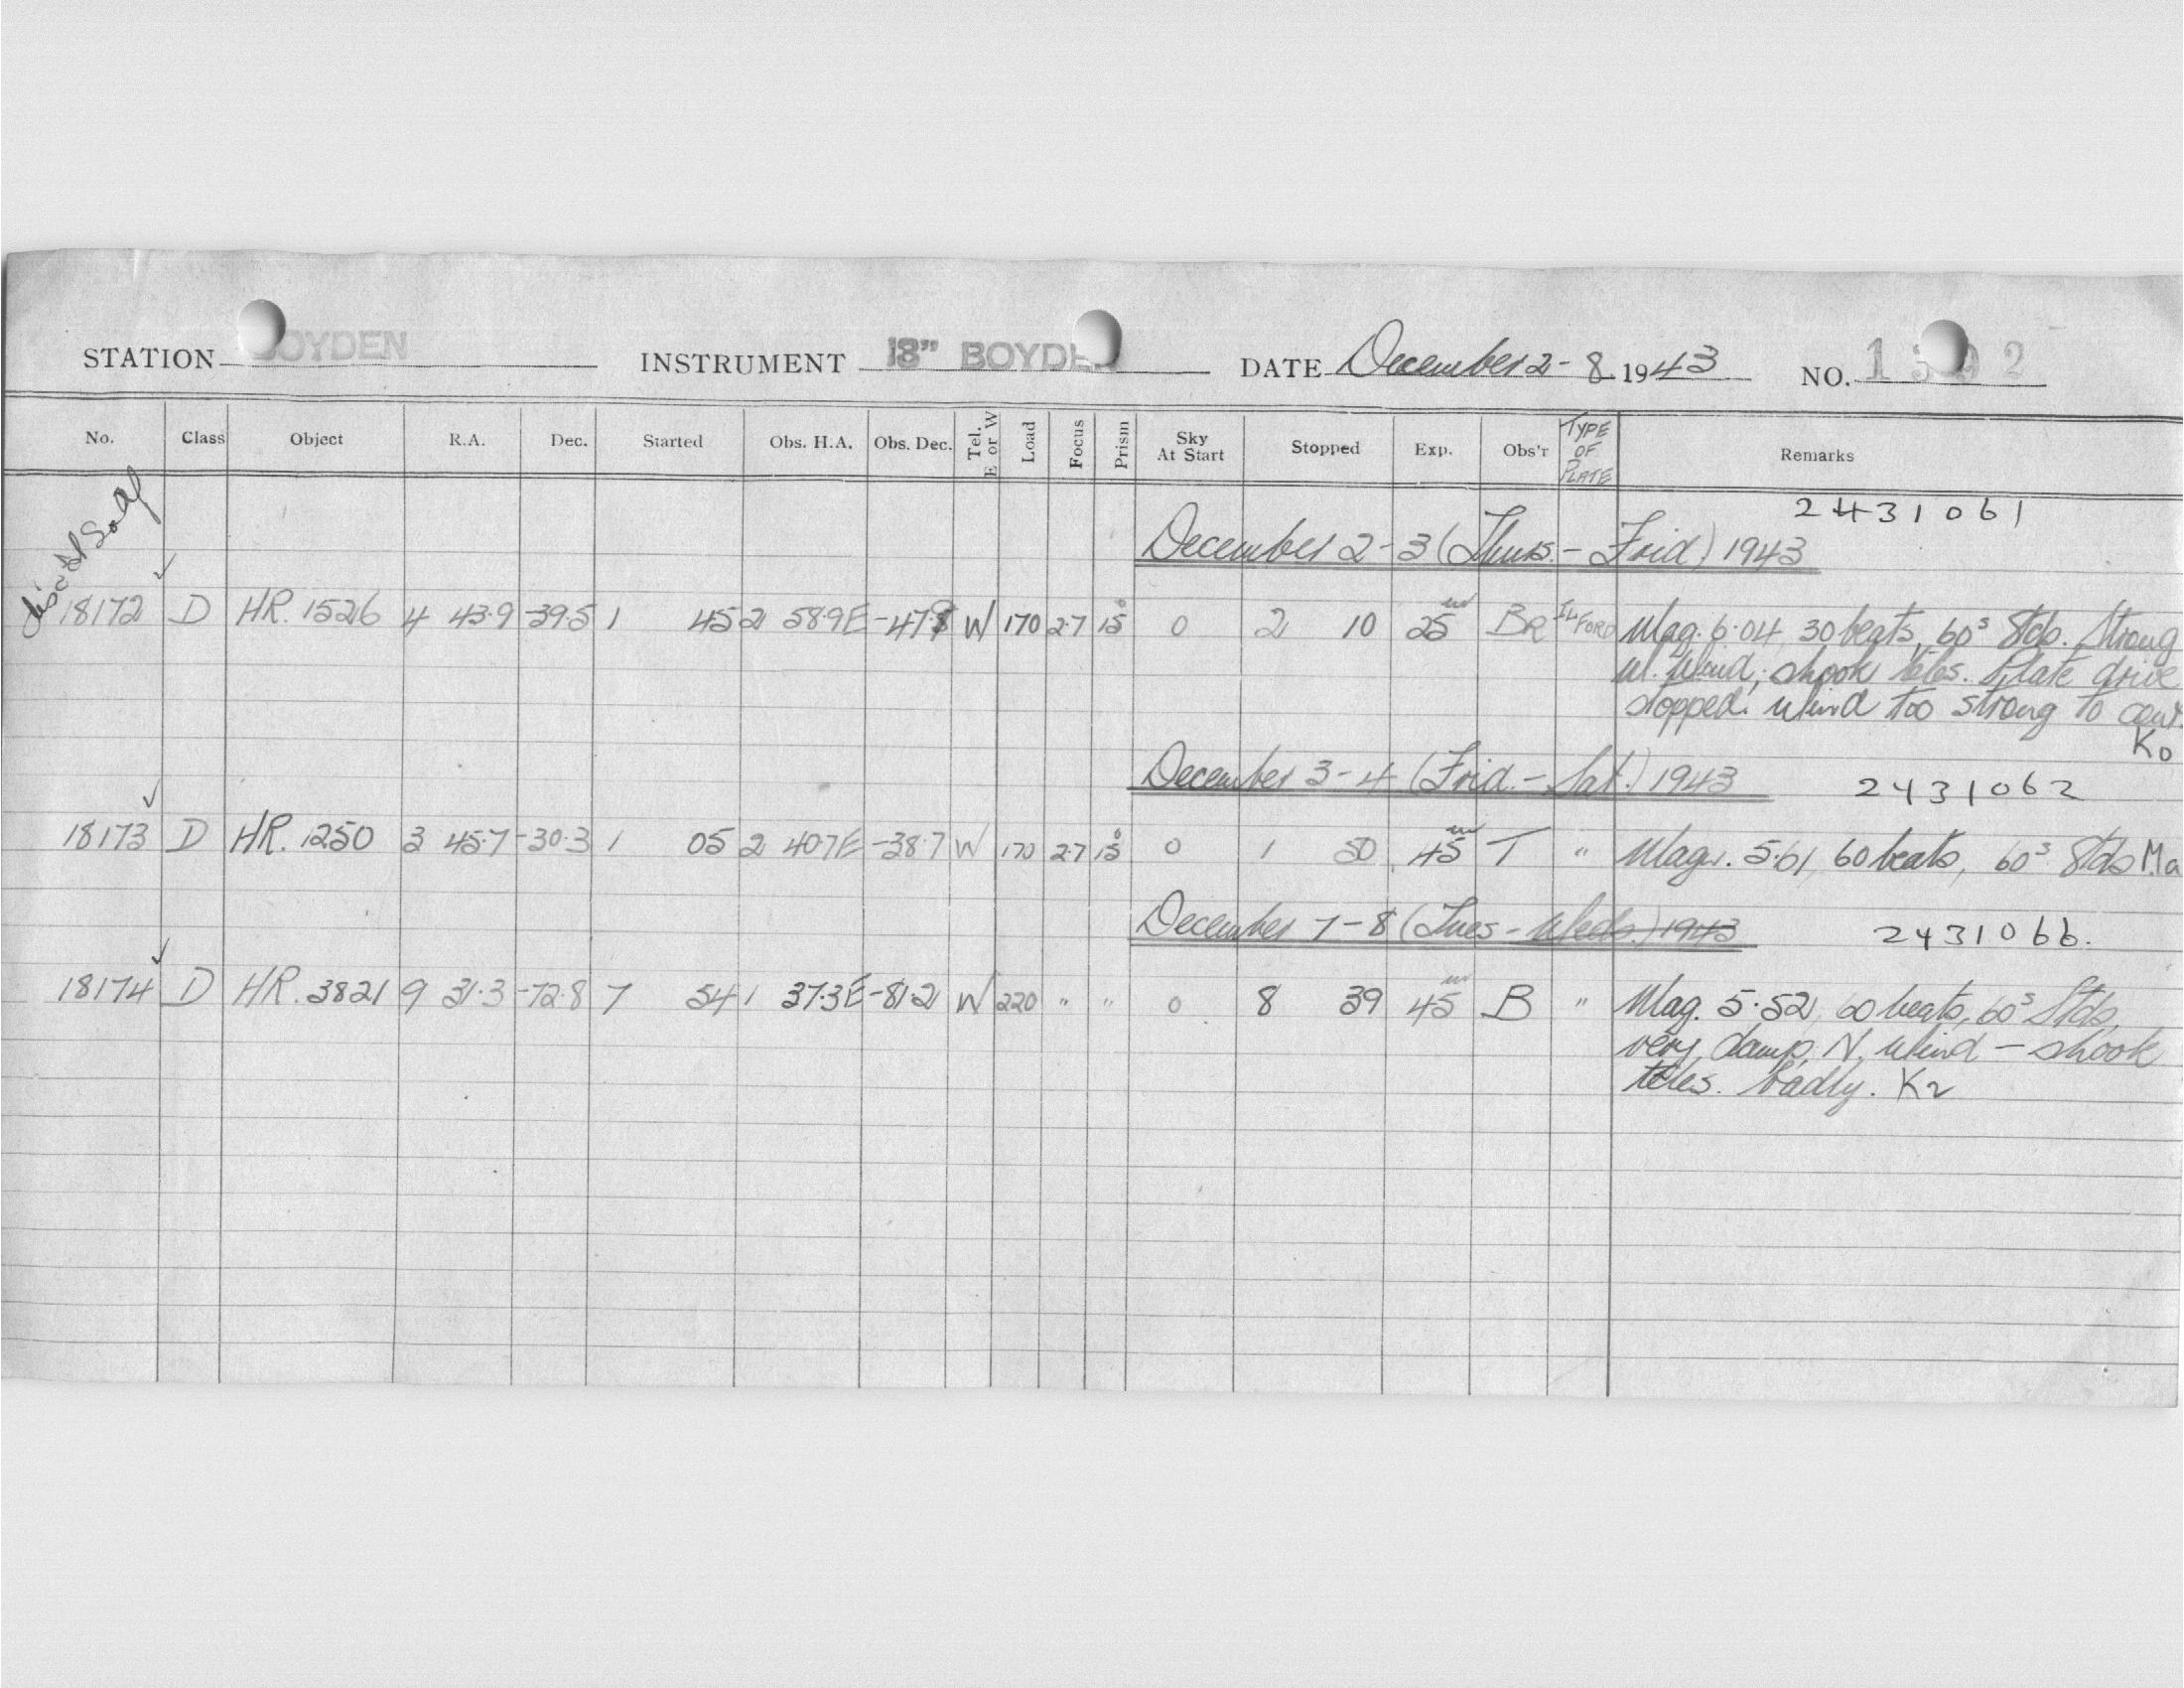 STATION BOYDEN INSTRUMENT 18" BOYDEN DATE December 2-8 1943 NO.
No. Class Object R.A. Dec. Started Obs. H.A. Obs. Dec. Tel. E or W Load Focus Prism Sky At Start Stopped Exp. Obs'r TYPE OF PLATE Remarks
2431061
December 2-3 (Thurs.- Frid) 1943
18172 D HR. 1526 4 43.9 -39.5 1 45 2 58.9E -47.8 W 170 2.7 15° 0 2 10 25m BR ILFORD Mag. 6.04, 30 beats, 60s Stds. Strong
W. Wind, shook teles. Plate drive
stopped. Wind too strong to cont.
K0
December 3-4 (Frid.- Sat.) 1943 2431062
18173 D HR. 1250 3 45.7 -30.3 1 05 2 40.7E -38.7 W 170 2.7 15° 0 1 50 45m T " Mag. 5.61, 60 beats, 60s Stds Ma
December 7-8 (Tues - Weds.) 1943 2431066.
18174 D HR. 3821 9 31.3 -72.8 7 54 1 37.3E -81.2 W 220 " " 0 8 39 45m B " Mag. 5.52, 60 beats, 60s Stds,
very damp, N. Wind - shook
teles. badly. K2